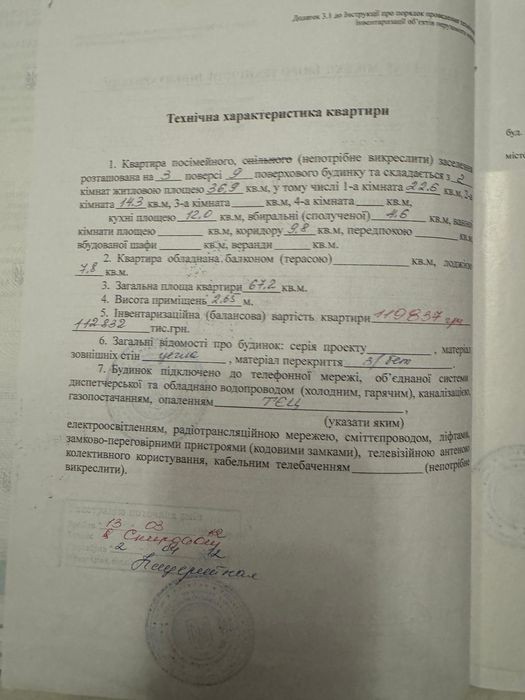 Додаток 3.1 до Інструкції про порядок проведення
інвентаризації об'єктів нерухомого
буд.
Технічна характеристика квартири
1. Квартира посімейного, спільного (непотрібне викреслити) заселення
розташована на 3 поверсі 9 поверхового будинку та складається з 2
кімнат житловою площею 36,9 кв.м, у тому числі 1-а кімната 22.6 кв.м, 2-а
кімната 14.3 кв.м, 3-а кімната кв.м, 4-а кімната кв.м,
кухні площею 12,0 кв.м, вбиральні (сполученої) 4,6 кв.м, ванної
кімнати площею кв.м, коридору 9,8 кв.м, передпокою кв.м
вбудованої шафи кв.м, веранди кв.м.
2. Квартира обладнана балконом (терасою) кв.м, лоджією
7,8 кв.м.
3. Загальна площа квартири 67.2 кв.м.
4. Висота приміщень 2.65 м.
5. Інвентаризаційна (балансова) вартість квартири 110837 грн
112832 тис.грн.
6. Загальні відомості про будинок: серія проекту , матеріал
зовнішніх стін цегла , матеріал перекриття з/бет .
7. Будинок підключено до телефонної мережі, об'єднаної системи
диспетчерської та обладнано водопроводом (холодним, гарячим), каналізацією,
газопостачанням, опаленням ТЕЦ ,
(указати яким)
електроосвітленням, радіотрансляційною мережею, сміттєпроводом, ліфтами,
замково-переговірними пристроями (кодовими замками), телевізійною антеною
колективного користування, кабельним телебаченням (непотрібне
викреслити).
13 03
2 04 12